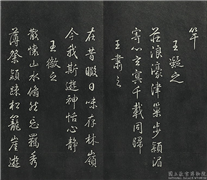 竿
王凝之
莊浪濠津巢步潁湄
寄心玄寞千載同歸
王肅之
在昔暇日味存林嶺
今我斯遊神怡心靜
王徽之
散懷山水脩然忘羈秀
薄粲潁疎松籠崖遊